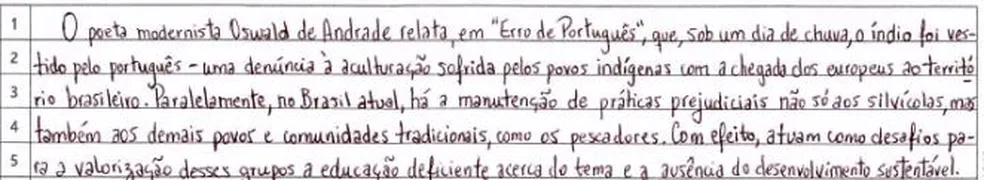 1 O poeta modernista Oswald de Andrade relata, em "Erro de Português", que, sob um dia de chuva, o índio foi ves-
2 tido pelo português - uma denúncia à aculturação sofrida pelos povos indígenas com a chegada dos europeus ao territó
3 rio brasileiro. Paralelamente, no Brasil atual, há a manutenção de práticas prejudiciais não só aos silvícolas, mas
4 também aos demais povos e comunidades tradicionais, como os pescadores. Com efeito, atuam como desafios pa-
5 ra a valorização desses grupos a educação deficiente acerca do tema e a ausência do desenvolvimento sustentável.